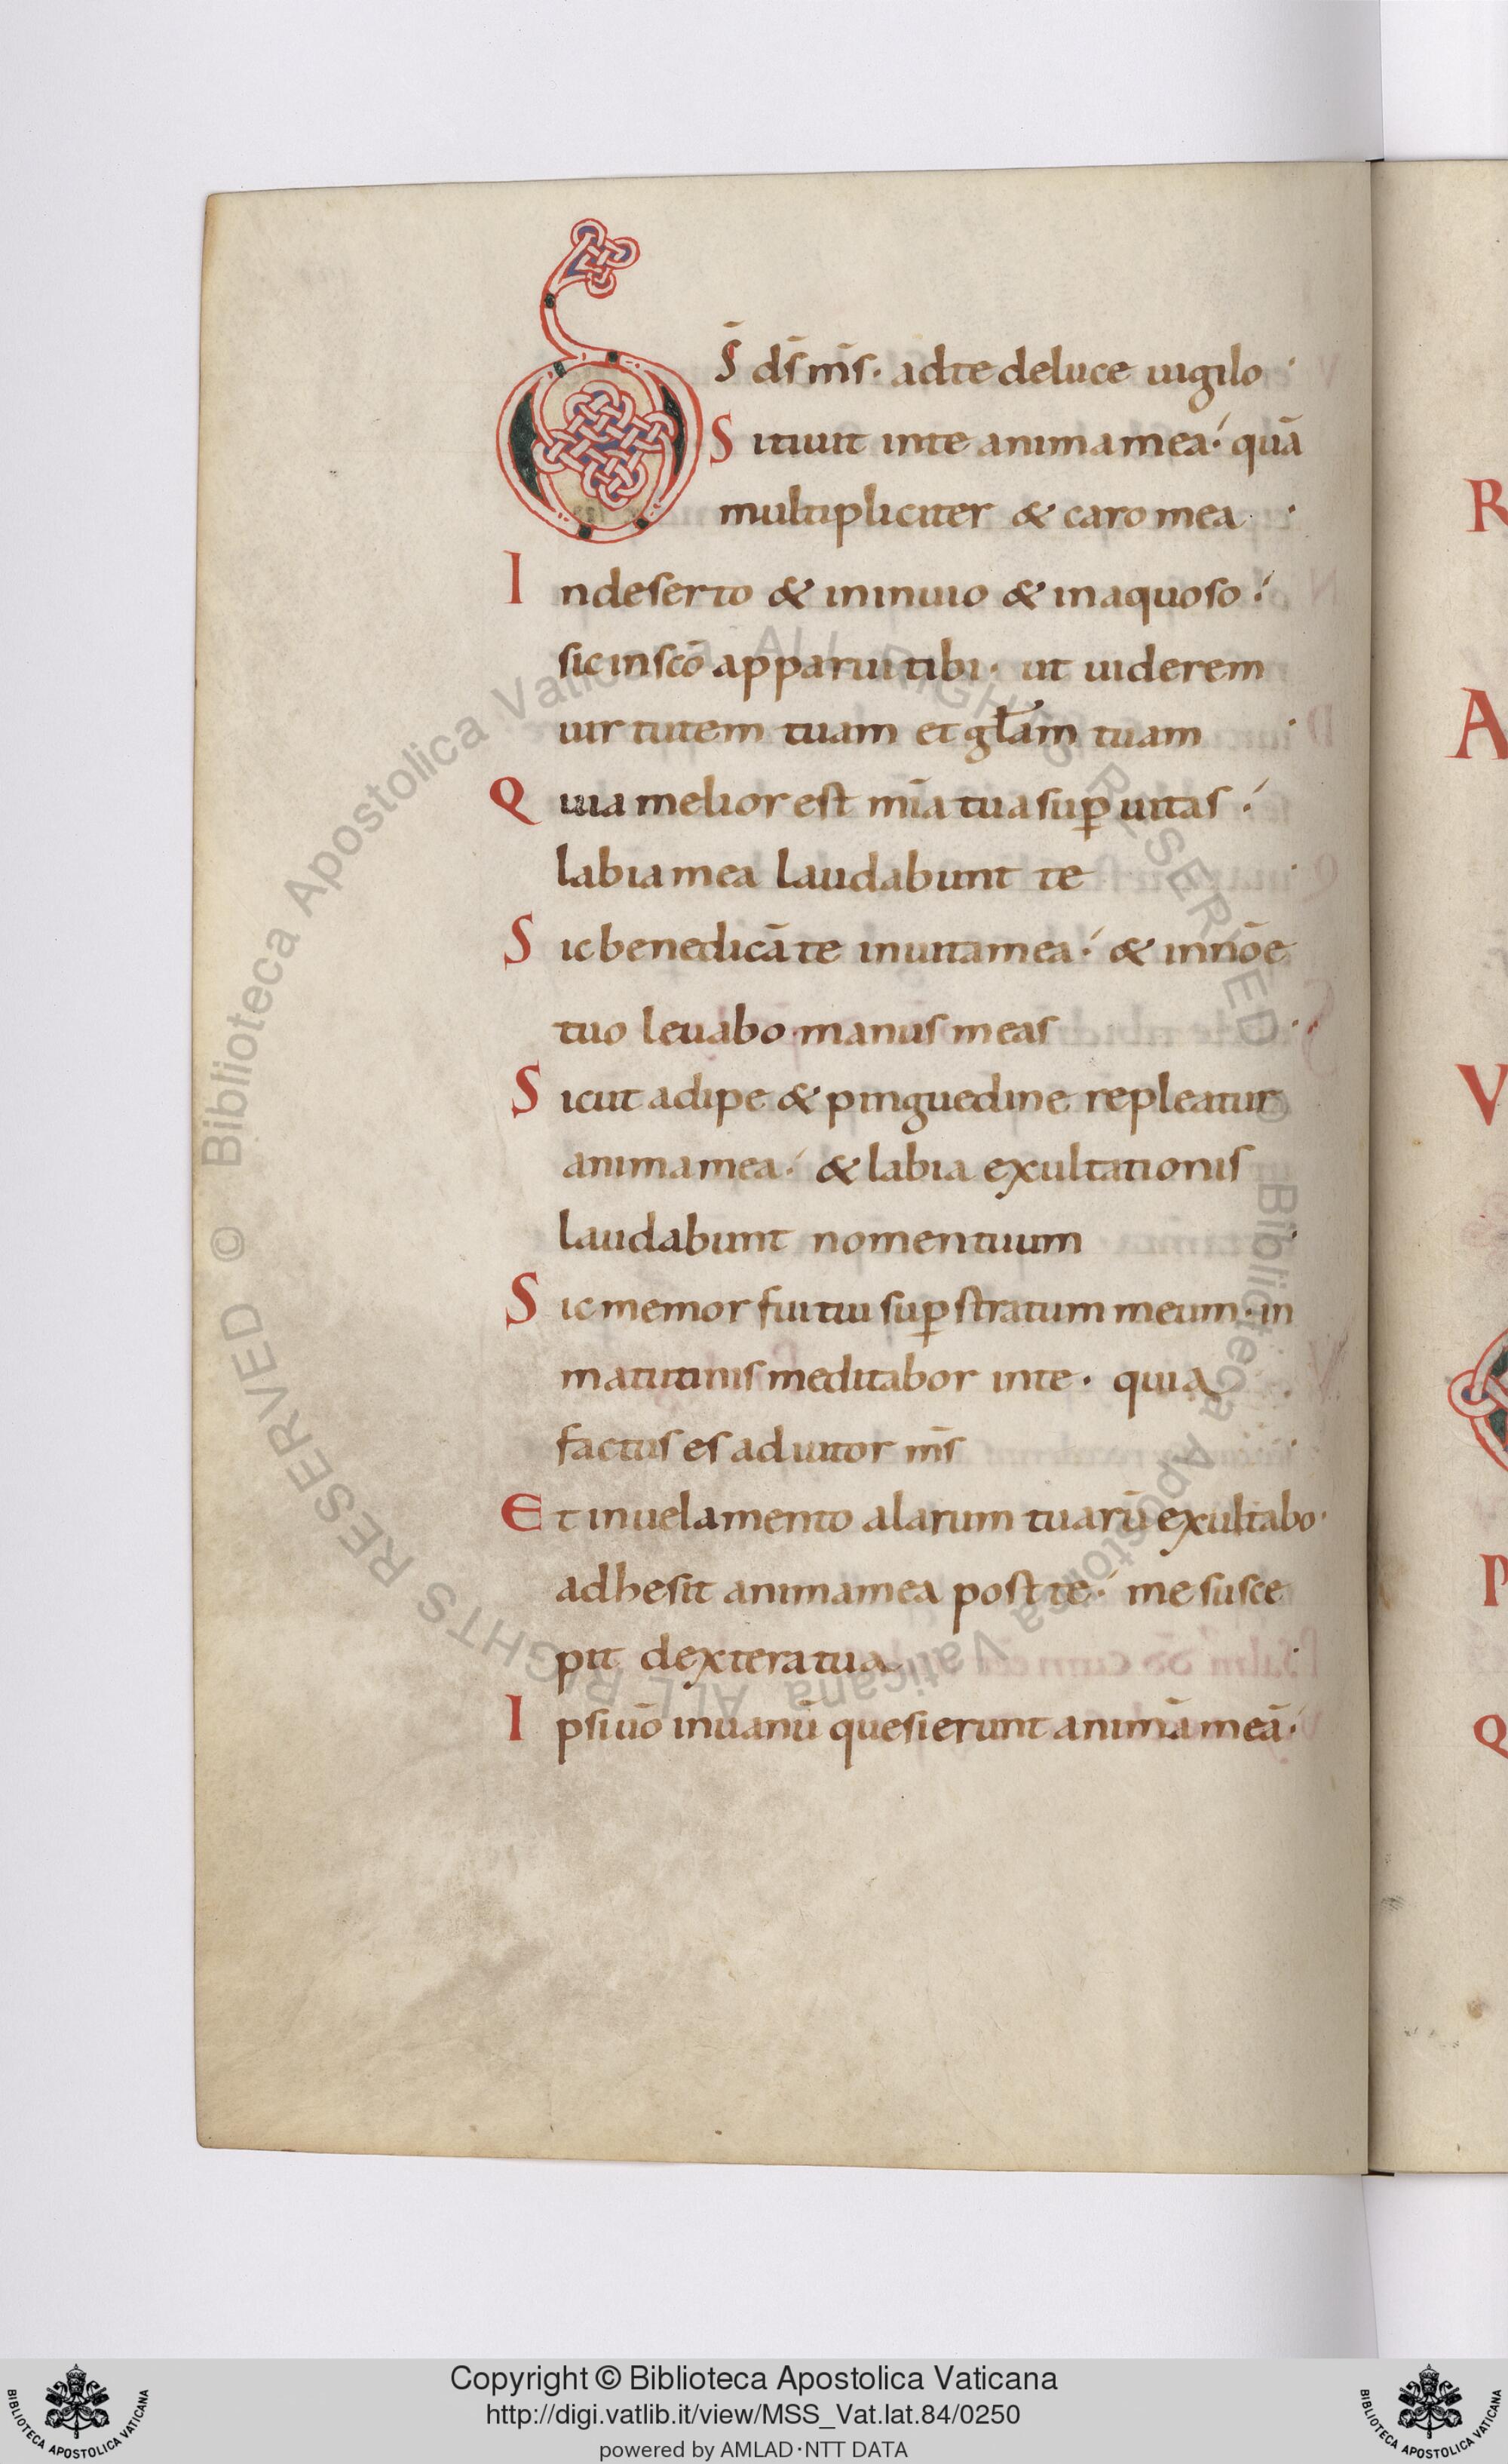 DS̄ ds̄ ms̄· ad te deluce uigilo·
Sitiuit inte anima mea·́ quā
multipliciter & caro mea·
Indeserto & ininuio & inaquoso·́
sic insc̄o apparui tibi· ut uiderem
uirtutem tuam et gl̄am tuam·
Quia melior est mīa tua sup̄ uitas·́
labia mea laudabunt te·
Sic benedicā te inuita mea·́ & innōe
tuo leuabo manus meas·
Sicut adipe & pinguedine repleatur
anima mea·́ & labia exultationis
laudabunt nomen tuum·
Sic memor fui tui sup̄ stratum meum· in
matutinis meditabor inte· quia
factus es adiutor ms̄·
Et inuelamento alarum tuarū exultabo·
adhesit anima mea post te·́ me susce
pit dextera tua·
Ipsi uō inuanū quesierunt animā meā·́
R
A
V
P
Q
© Biblioteca Apostolica Vaticana ALL RIGHTS RESERVED
© Biblioteca Apostolica Vaticana ALL RIGHTS RESERVED
Copyright © Biblioteca Apostolica Vaticana
http://digi.vatlib.it/view/MSS_Vat.lat.84/0250
powered by AMLAD·NTT DATA
BIBLIOTECA APOSTOLICA VATICANA
BIBLIOTECA APOSTOLICA VATICANA